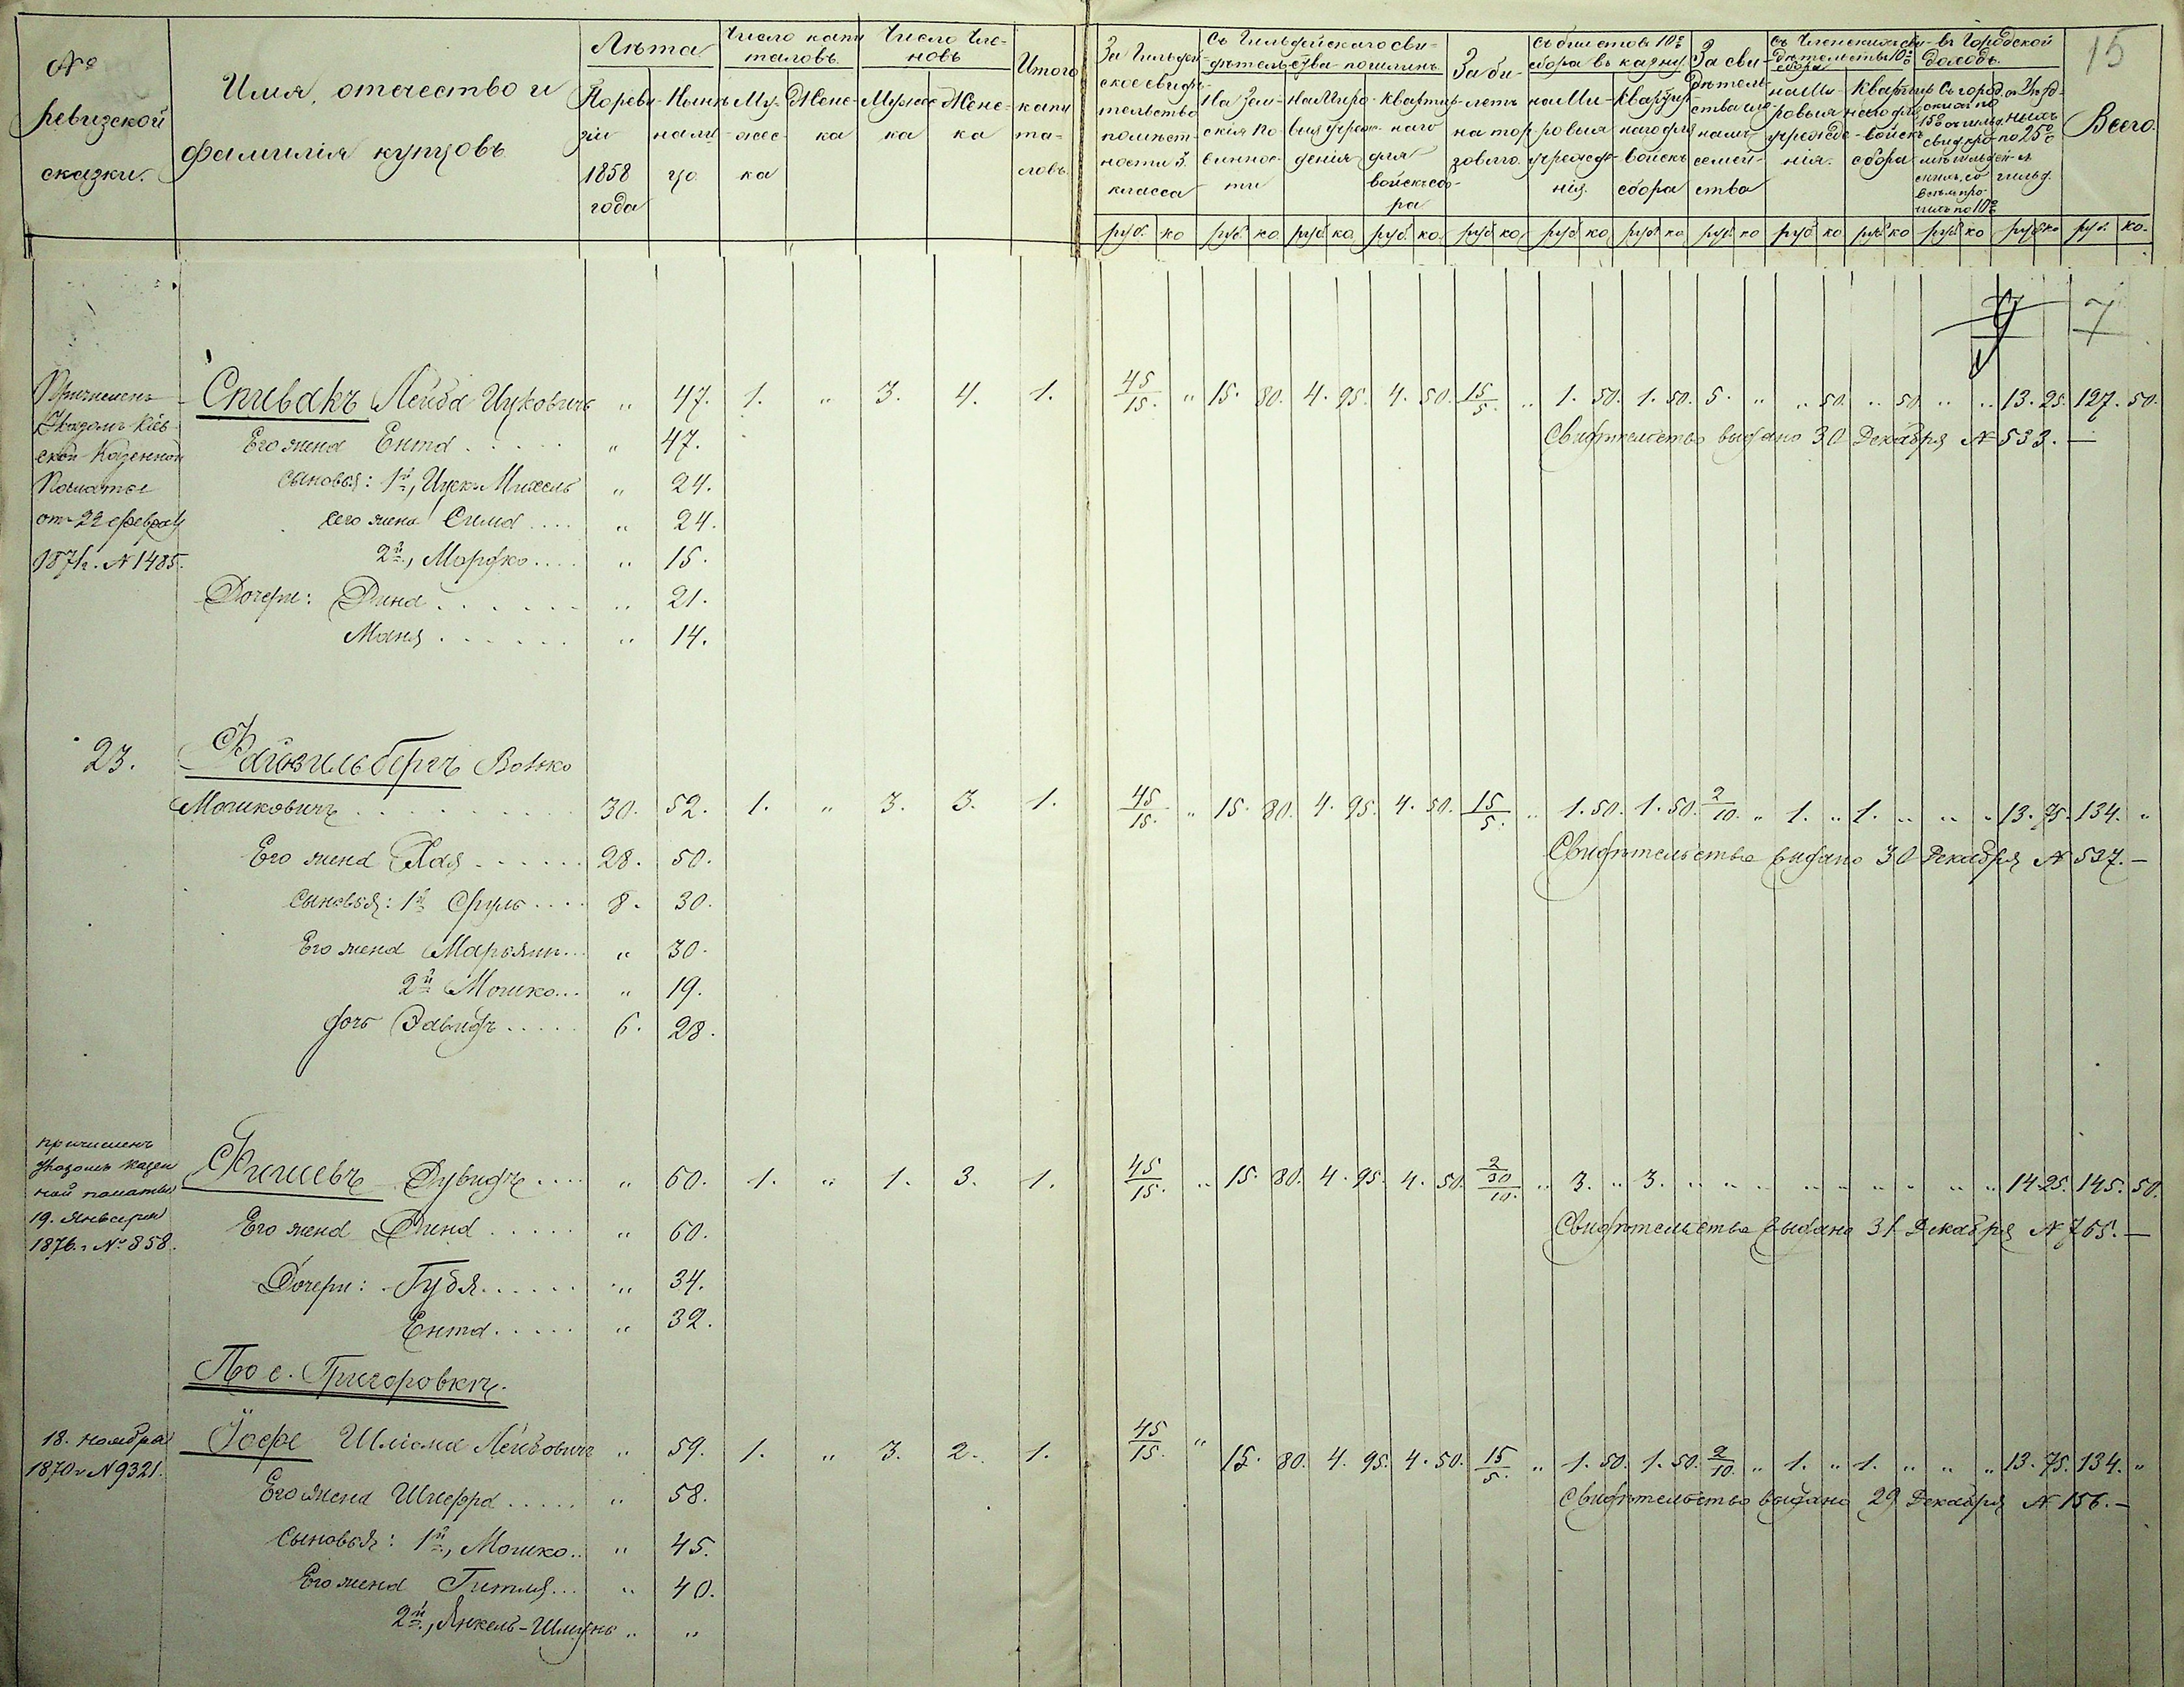 15
№ Ревизской сказки.
Имя, отчество и фамилія купцовъ
Лѣта
По ревизіи 1858 года
Нынѣ налицо
Число капиталовъ
Мужеска
Женска
Число членовъ
Мужеска
Женска
Итого капиталовъ
За Гильдейское свидѣтельство по мѣстности 3. класса
Съ Гильдейскаго свидѣтельства пошлинъ
На Земскія повинности
На Мировыя учрежденія
Квартирнаго для войскъ сбора
За билетъ на торговлю
Съ билетовъ 10% сбора въ казну
на Мировыя учрежденія
Квартирнаго для войскъ сбора
За свидѣтельства членамъ семейства
Съ Членскихъ свидѣтельствъ 10% сбора
на Мировыя учрежденія
Квартирнаго для войскъ сбора
въ Городской доходъ
Всего
руб. ко руб. ко руб ко руб. ко. руб ко руб ко руб ко руб ко руб ко руб ко руб ко руб ко руб. ко.
7
Причисленъ Спивакъ Лейба Ицковичъ „ 47. 1. „ 3. 4. 1. 45/15. „ 15. 80. 4. 95. 4. 50. 15/5. „ 1. 50. 1. 50. 5. „ „ 50. „ 50 „ „ 13. 25. 127. 50.
Указомъ Кіев- Его жена Ента . . . „ 47. Свидѣтельство выдано 30 Декабря № 533. —
ской Казенной сыновья: 1й, Ицко Михель „ 24.
Палаты его жена Сима . . . . „ 24.
от 22 феврал 2й, Мордко . . . . „ 15.
1871г. № 1485. Дочери: Дина . . . . . . „ 21.
Маня . . . . . . „ 14.
23. Файнзильбергъ Волько
Мошковичъ . . . . . . . . 30. 52. 1. „ 3. 3. 1. 45/15. „ 15. 80. 4. 95. 4. 50. 15/5. „ 1. 50. 1. 50. 2/10. „ 1. „ 1. „ „ „ 13. 75. 134. „
Его жена Хая . . . . . . 28. 50. Свидѣтельство выдано 30 Декабря № 537. —
Сыновья: 1й Сруль . . . . 8. 30.
Его жена Марьямъ . . . „ 30.
2й Мошко . . . „ 19.
дочь Эльвидъ . . . . . 6. 28.
причисленъ Фишевъ Дувидъ . . . . „ 60. 1. „ 1. 3. 1. 45/15. „ 15. 80. 4. 95. 4. 50. 2/30/10. „ 3. „ 3. „ „ „ „ „ „ „ „ „ 14 25. 145. 50.
Указомъ казен
ной палаты
19. Января Его жена Дина . . . . . „ 60. Свидѣтельство выдано 31 Декабря № 765. —
1876.г № 858.
Дочери: Губя . . . . . . „ 34.
Ента . . . . . „ 32.
По с. Григоровкѣ.
18. ноября Іоффе Шліома Лейбовичъ „ 59. 1. „ 3. 2. 1. 45/15. „ 15. 80. 4. 95. 4. 50. 15/5. „ 1. 50. 1. 50. 2/10. „ 1. „ 1. „ „ „ 13. 75. 134. „
1870 г № 9321. Его жена Шнефра . . . . . „ 58. Свидѣтельство выдано 29 Декабря № 156. —
Сыновья: 1й, Мошко . . „ 45.
Его жена Гитля . . . „ 40.
2й, Янкель-Шлиунъ „ „